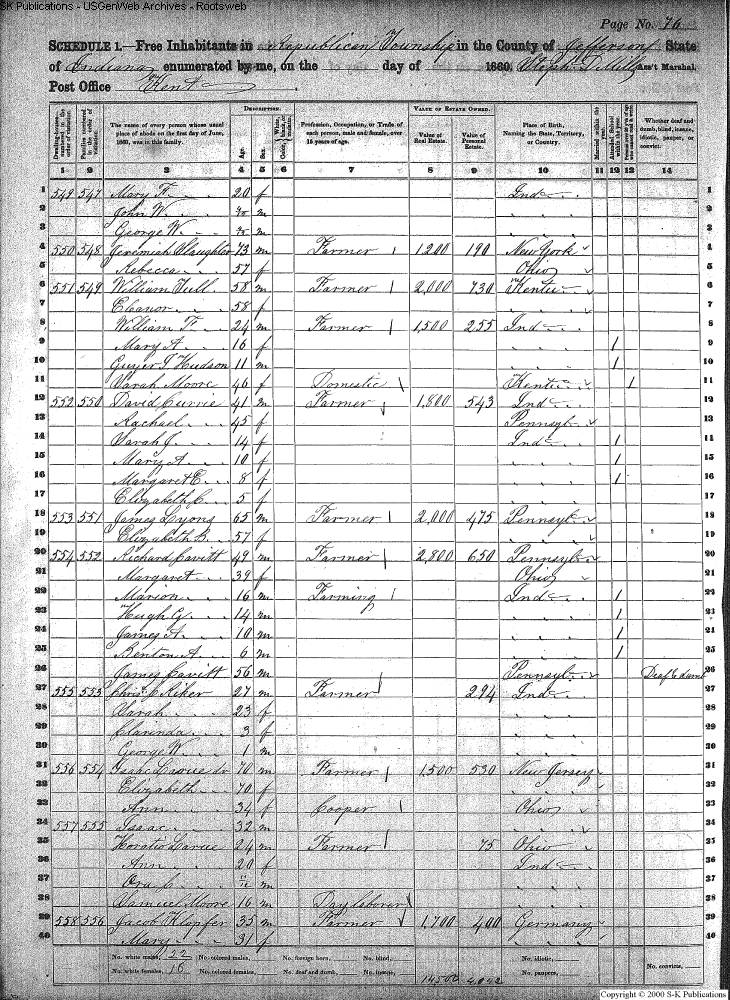 S-K Publications - USGenWeb Archives - Rootsweb
Page No. 76
SCHEDULE 1.—Free Inhabitants in Republican Township in the County of Jefferson State
of Indiana enumerated by me, on the day of 1860. Ass't Marshal.
Post Office Kent
DESCRIPTION. VALUE OF ESTATE OWNED.
Dwelling-houses numbered in the order of visitation. Families numbered in the order of visitation. The name of every person whose usual place of abode on the first day of June, 1860, was in this family. Age. Sex. Color, Profession, Occupation, or Trade of each person, male and female, over 15 years of age. Value of Real Estate. Value of Personal Estate. Place of Birth, Naming the State, Territory, or Country. Married within the year. Attended School within the year. Whether deaf and dumb, blind, insane, idiotic, pauper, or convict.
1 2 3 4 5 6 7 8 9 10 11 12 13 14
1 549 547 Mary F. 20 f Ind 1
2 John W. m 2
3 George W. m 3
4 550 548 Jeremiah Slaughter 73 m Farmer 1,200 190 New York 4
5 Rebecca 57 f Ohio 5
6 551 549 William Tull 58 m Farmer 2,000 730 Kentu 6
7 Eleanor 58 f 7
8 William F. 24 m Farmer 1,500 255 Ind 8
9 Mary A. 16 f 1 9
10 Hudson 11 m 1 10
11 Sarah Moore 46 f Domestic Kentu 1
12 552 550 David Currie 41 m Farmer 1,800 543 Ind 12
13 Rachael 45 f Pennsyl 13
14 Sarah J. 14 f Ind 1
15 Mary A. 10 f 1 15
16 Margaret E. 8 f 1 16
17 Elizabeth C. 5 f 17
18 553 551 James Lyons 65 m Farmer 2,000 475 Pennsyl 18
19 Elizabeth B. 57 f 19
20 554 552 Richard Cavitt 49 m Farmer 2,800 650 Pennsyl 20
21 Margaret 39 f Ohio 21
22 Marion 16 m Farming Ind 22
23 Hugh G. 14 m 1 23
24 James A. 10 m 1 24
25 Benton A. 6 m 1 25
26 James Cavitt 56 m Pennsyl Deaf & dumb 26
27 555 553 Christ. C. Riker 27 m Farmer 294 Ind 27
28 Sarah 23 f 28
29 Clarinda 3 f 29
30 George W. 1 m 30
31 556 554 Isaac 70 m Farmer 1,500 530 New Jersey 31
32 Elizabeth 70 f 32
33 Ann 34 f Cooper Ohio 33
34 557 555 Isaac 32 m 34
35 Horatio 24 m Farmer 75 Ohio 35
36 Ann 20 f Ind 36
37 Ora m 37
38 Samuel Moore 16 m Day laborer 38
39 558 556 Jacob Klopfer 35 m Farmer 1,700 400 Germany 39
40 Mary 31 f 40
No. white males, 22 No. colored males, No. foreign born, No. blind, No. idiotic, No. convicts,
No. white females, 18 No. colored females, No. deaf and dumb, No. insane, 14500 No. paupers,
Copyright © 2000 S-K Publications